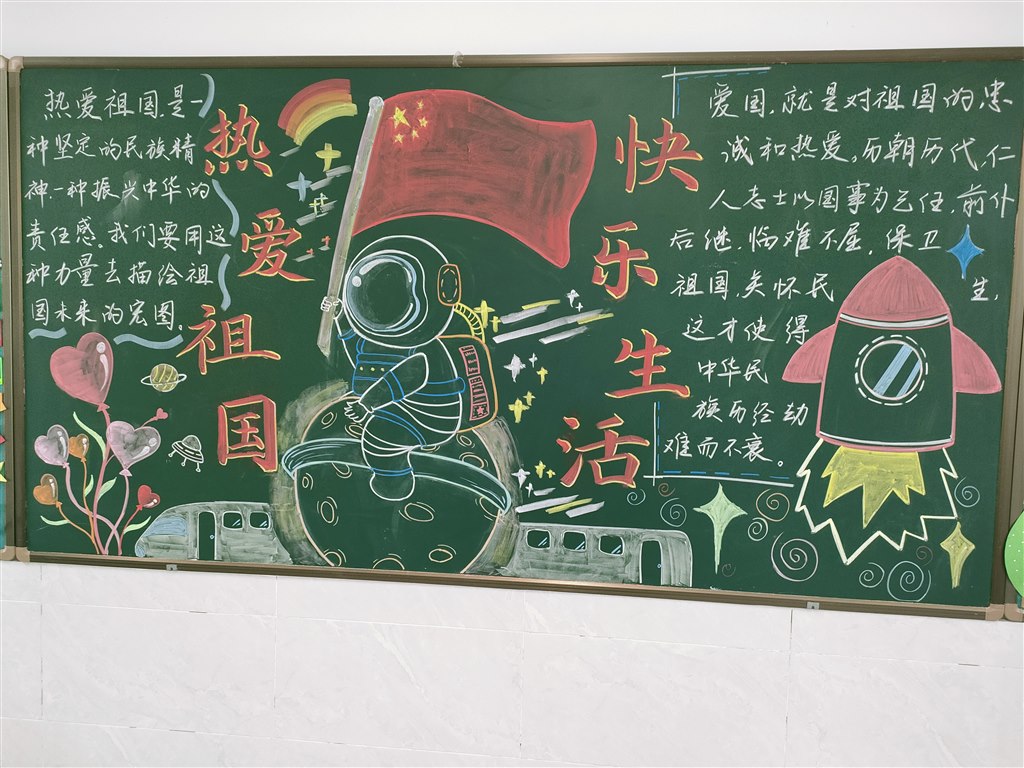 热爱祖国,是一
种坚定的民族精
神一种振兴中华的
责任感。我们要用这
种力量去描绘祖
国未来的宏图。
热爱祖国
快乐生活
爱国,就是对祖国的忠
诚和热爱。历朝历代,仁
人志士以国事为己任,前仆
后继,临难不屈,保卫
祖国,关怀民生,
这才使得
中华民
族历经劫
难而不衰。